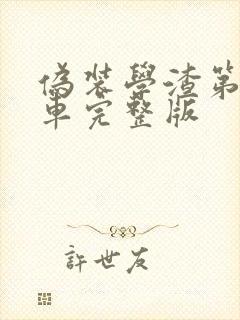 偽裝學渣第
車完整版
許世友